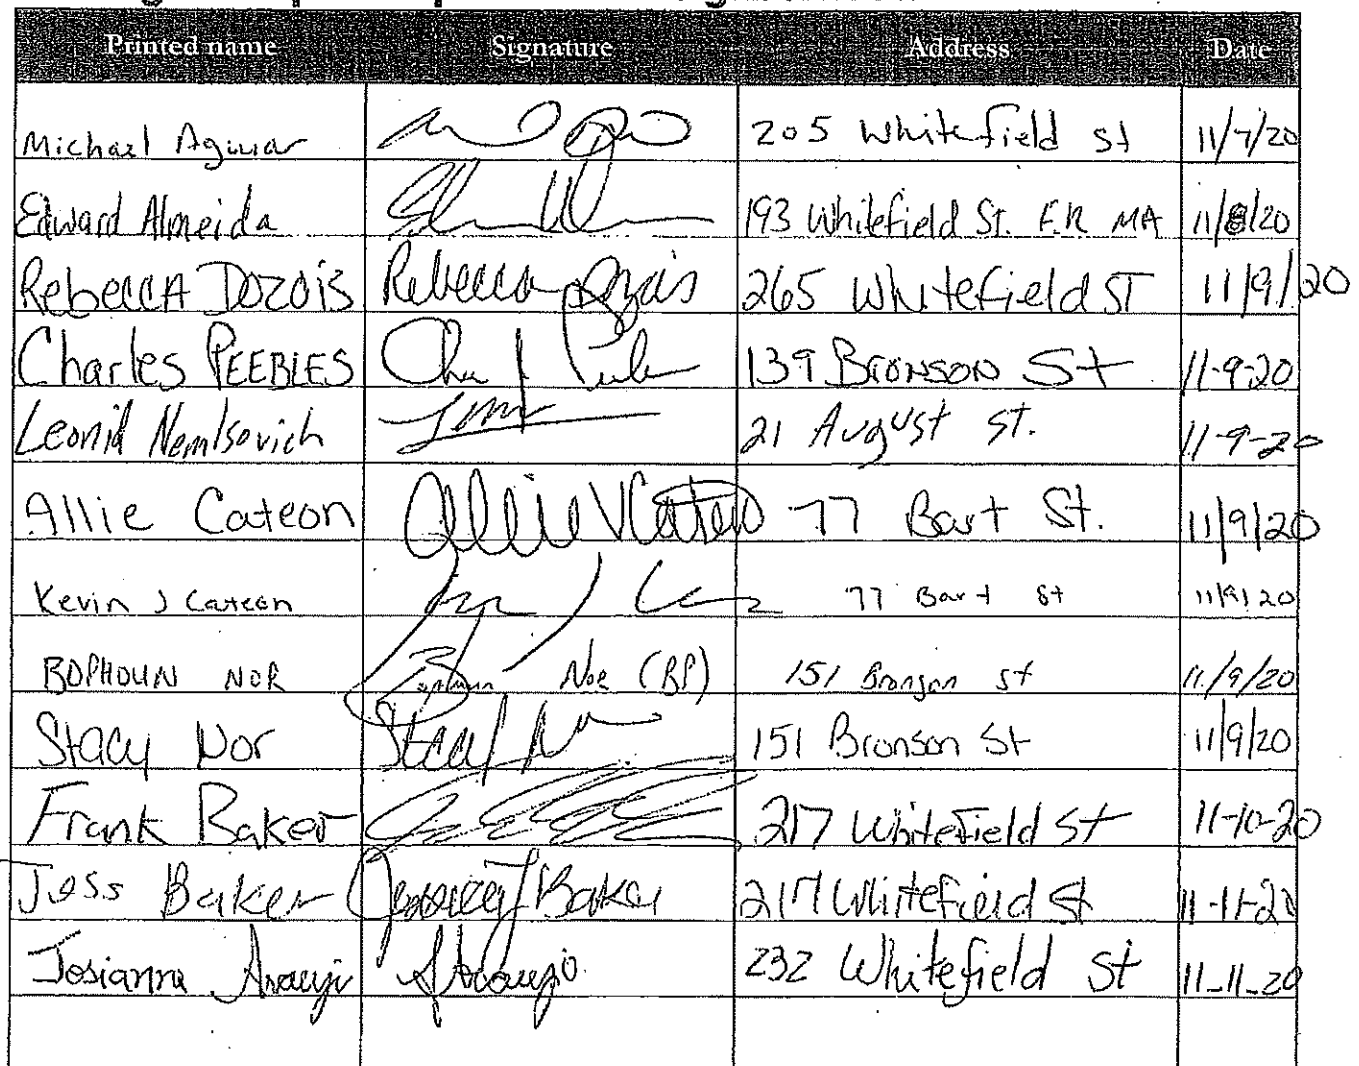 Printed name Signature Address Date
Michael Aguiar 205 Whitefield st 11/7/20
Edward Almeida 193 Whitefield St. F.R. MA 11/8/20
RebeccA Dozois Rebecca Dozois 265 Whitefield ST 11/9/20
Charles PEEBLES 139 BRONSON St 11-9-20
Leonid Nemtsovich 21 August St. 11-9-20
Allie Cateon Allie Cateon 77 Bart St. 11/9/20
Kevin J Cateon 77 Bart St 11/9/20
BOPHOUN NOR Bophoun Nor (BP) 151 Bronson st 11/9/20
Stacy Nor Stacy Nor 151 Bronson St 11/9/20
Frank Baker 217 Whitefield St 11-10-20
Jess Baker Baker 217 Whitefield St 11-11-20
Josianna Araujo J Araujo 232 Whitefield St 11-11-20